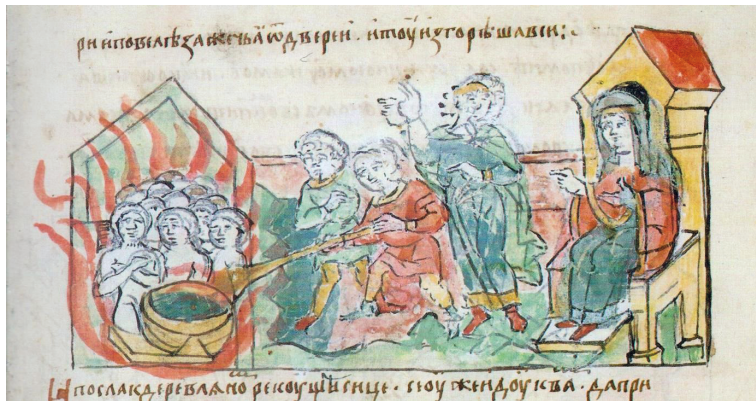 рии повелѣ зажечьꙗ ѿ двереи · итоу изгорѣша вси :·
И посла къ деревлѧно рекоущи сице · се оуже идоу к вꙑ · да при